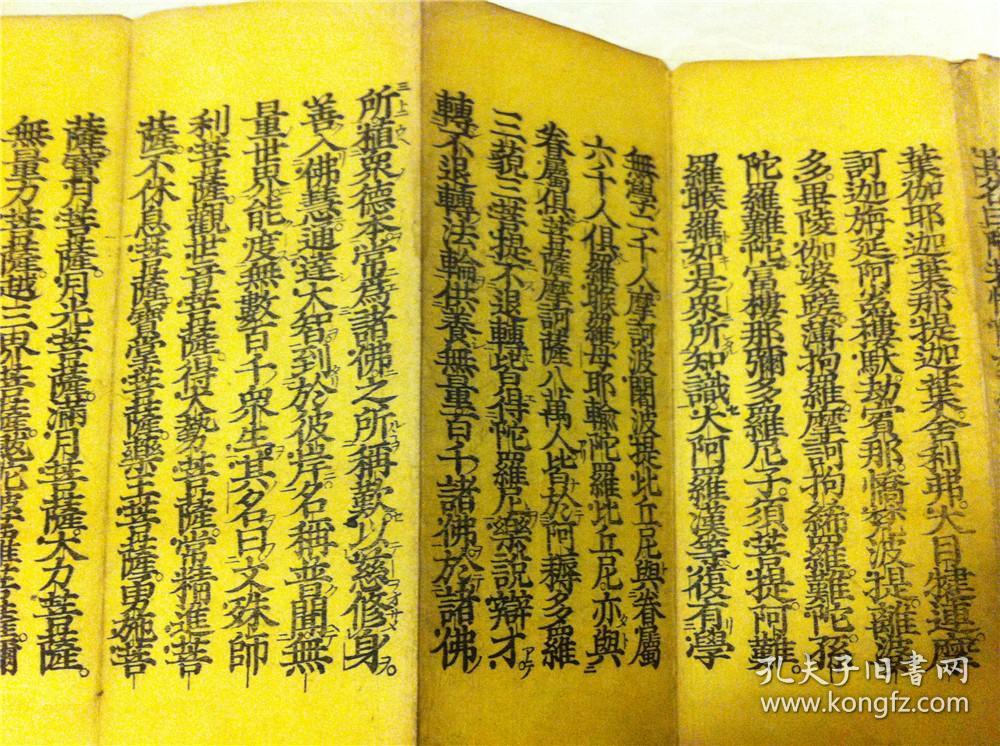 葉伽耶迦葉那提迦葉舍利弗大目犍連摩
訶迦旃延阿㝹樓馱劫賓那憍梵波提離婆
多畢陵伽婆蹉薄拘羅摩訶拘絺羅難陀孫
陀羅難陀富樓那彌多羅尼子須菩提阿難
羅睺羅如是衆所知識大阿羅漢等復有學
無學二千人摩訶波闍波提比丘尼與眷屬
六千人俱羅睺羅母耶輸陀羅比丘尼亦與
眷屬俱菩薩摩訶薩八萬人皆於阿耨多羅
三藐三菩提不退轉皆得陀羅尼樂說辯才
轉不退轉法輪供養無量百千諸佛於諸佛
所植衆德本常爲諸佛之所稱歎以慈修身
善入佛慧通達大智到於彼岸名稱普聞無
量世界能度無數百千衆生其名曰文殊師
利菩薩觀世音菩薩得大勢菩薩常精進菩
薩不休息菩薩寶掌菩薩藥王菩薩勇施菩
薩寶月菩薩月光菩薩滿月菩薩大力菩薩
無量力菩薩越三界菩薩跋陀婆羅菩薩彌
孔夫子旧书网
www.kongfz.com